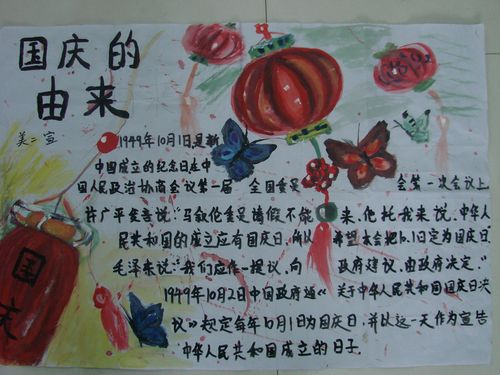 国庆的
由来
美二宣
1949年10月1日是新
中国成立的纪念日在中
国人民政治协商会议第一届 全国委员 会第一次会议上
许广平发言说:"马叙伦委员请假不能 来,他托我来说,中华人
民共和国的成立应有国庆日,所以 希望本会把10.1日定为国庆日
毛泽东说:"我们应作一提议,向 政府建议,由政府决定."
1949年10月2日中国政府通 关于中华人民共和国国庆日决
议》规定每年10月1日为国庆日,并以这一天作为宣告
中华人民共和国成立的日子.
国
庆